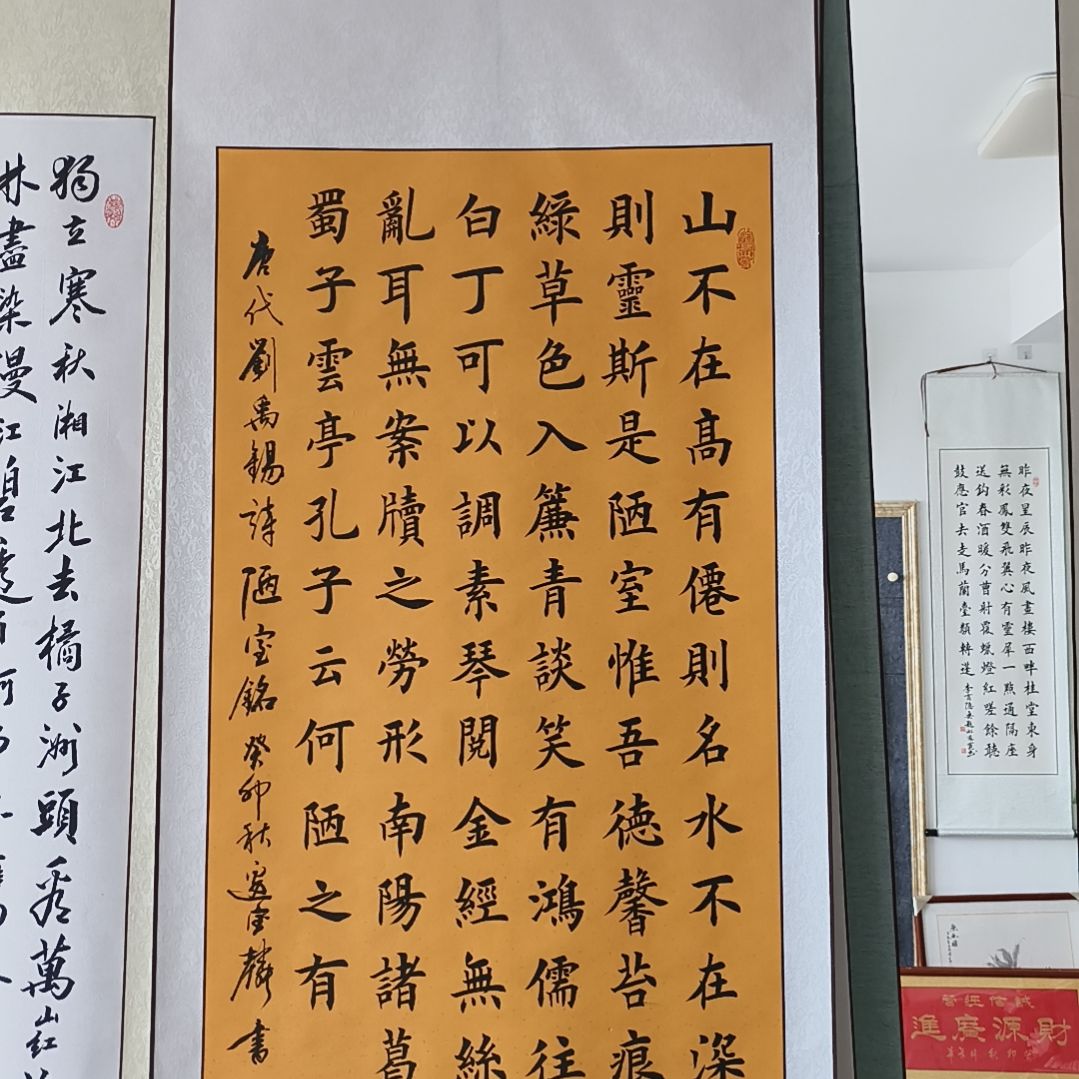 昨夜星辰昨夜風畫樓西畔桂堂東身
無彩鳳雙飛翼心有靈犀一點通隔座
送鈎春酒暖分曹射覆蠟燈紅嗟餘聽
鼓應官去走馬蘭臺類轉蓬
誠信經營
財源廣進
山不在高有僊則名水不在深
則靈斯是陋室惟吾德馨苔痕
綠草色入簾青談笑有鴻儒往
白丁可以調素琴閱金經無絲
亂耳無案牘之勞形南陽諸葛
蜀子雲亭孔子云何陋之有
唐代劉禹錫詩陋室銘癸卯秋麟書
獨立寒秋湘江北去橘子洲頭看萬山红
林盡染漫江碧透